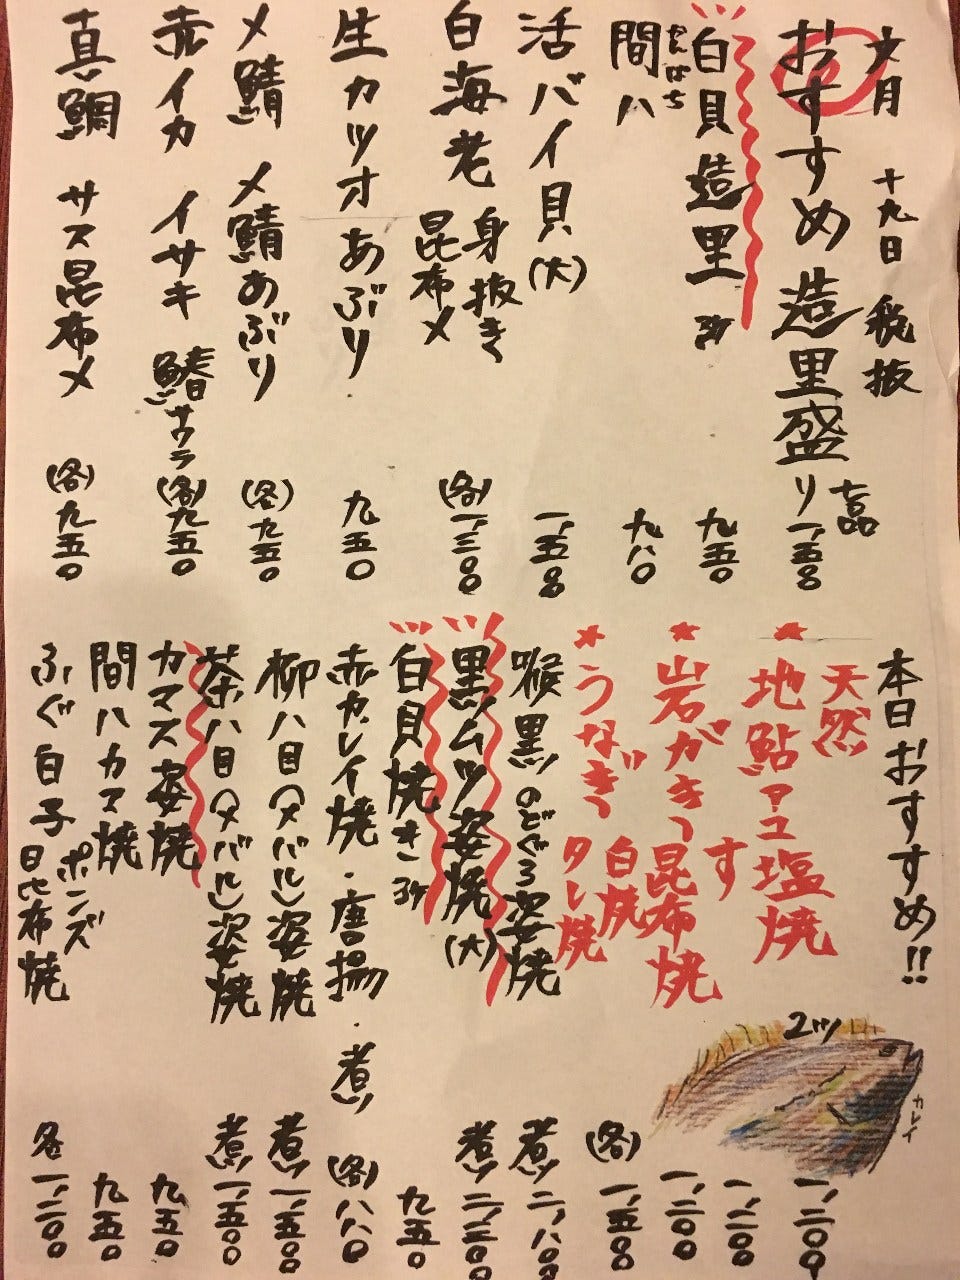 文月 十九日 税抜
おすすめ造里盛り 七品 一、五〇〇
白貝造里 九五〇
間八 かんぱち 九八〇
活バイ貝(大) 一、五〇〇
白海老 身抜き 昆布〆 (各)一、三〇〇
生カツオ あぶり 九五〇
〆鯖 〆鯖あぶり (各)九五〇
赤イカ イサキ 鰆サワラ (各)九五〇
真鯛 サス昆布〆 (各)九五〇
本日おすすめ!!
天然
★地鮎アユ塩焼 一、二〇〇
★岩がき す 一、二〇〇
昆布焼 一、二〇〇
★うなぎ 白焼 タレ焼 (各)一、五〇〇
喉黒のどぐろ姿焼 煮 二、八〇〇
黒ムツ姿焼(大) 煮 二、三〇〇
白貝焼き 九五〇
赤カレイ焼・唐揚・煮 (各)八八〇
柳八目(メバル)姿焼 煮 一、五〇〇
茶八目(メバル)姿焼 煮 一、五〇〇
カマス姿焼 九五〇
間八カマ焼 九五〇
ふぐ白子 ポンズ 昆布焼 各一、二〇〇
カレイ